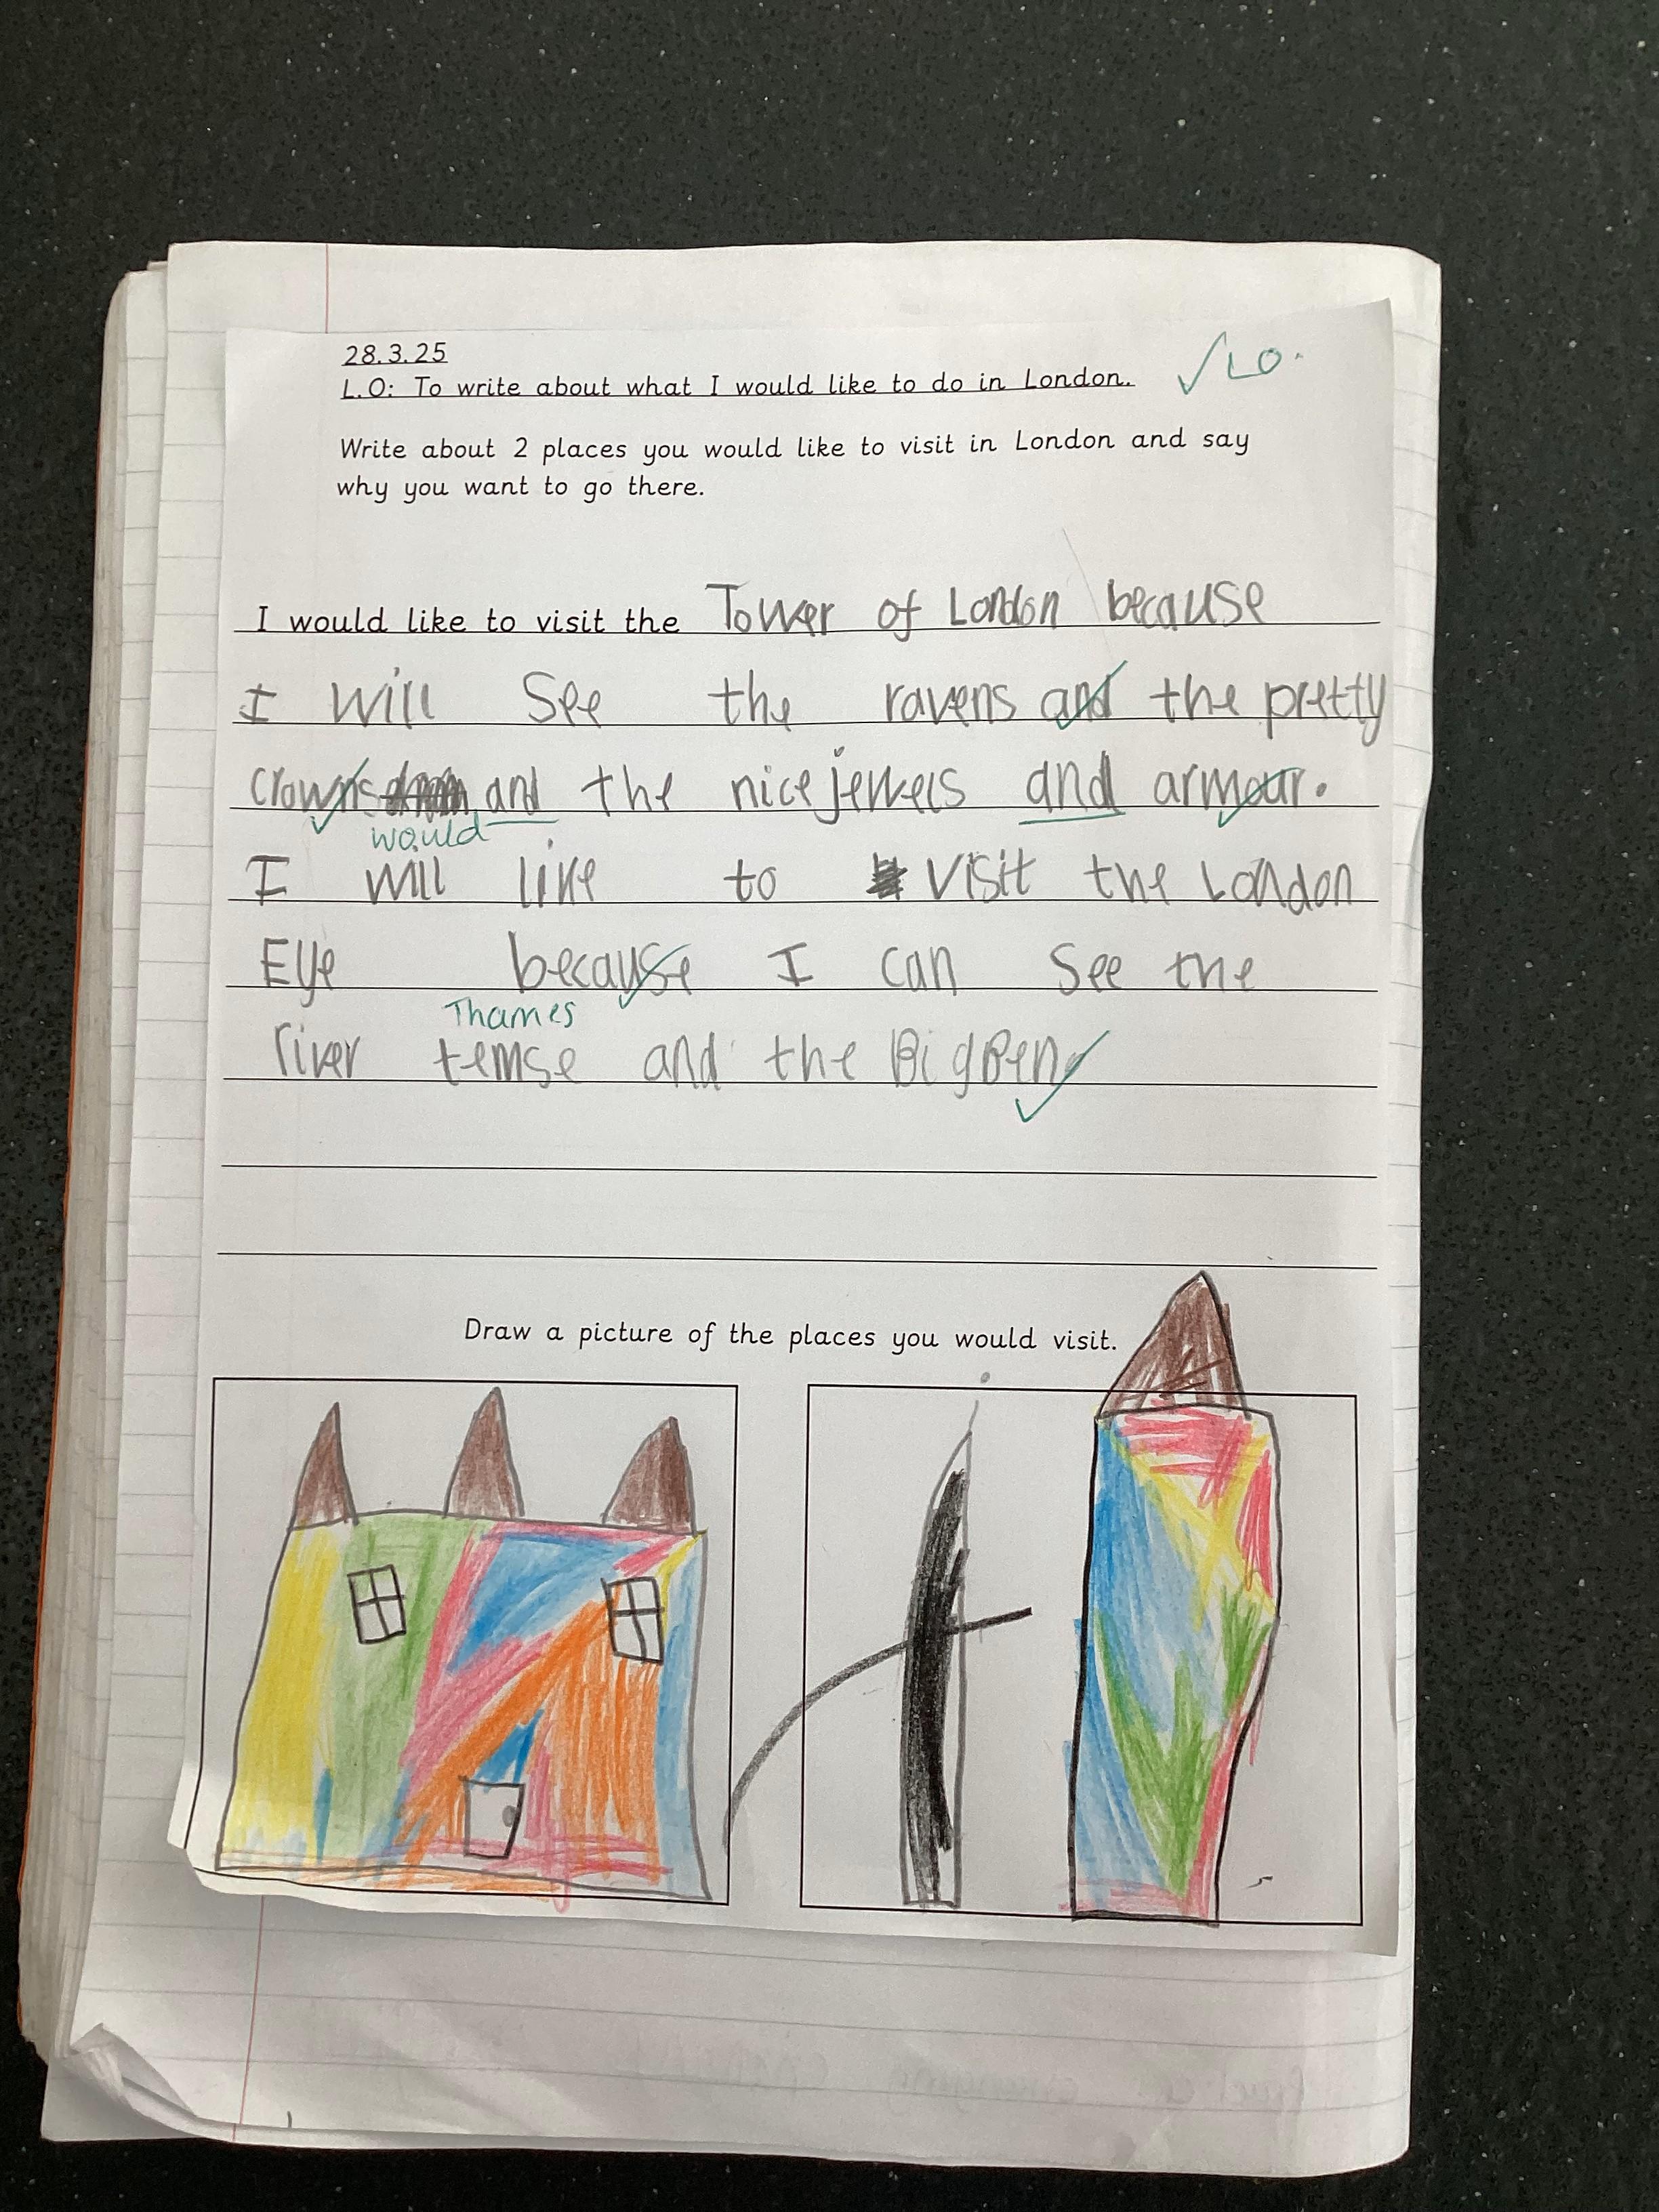 28.3.25
L.O: To write about what I would like to do in London.
✓ LO.
Write about 2 places you would like to visit in London and say
why you want to go there.
I would like to visit the Tower of London because
I will see the ravens and the pretty
crowns and the nice jewels and armour.
would
I will like to visit the London
Eye because I can see the
Thames
river temse and the Big Ben
Draw a picture of the places you would visit.